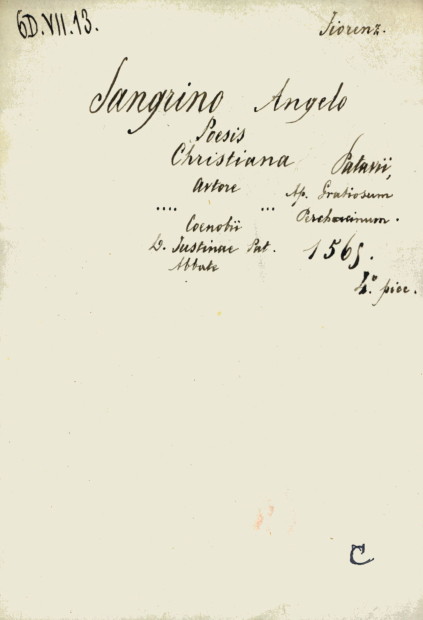 6D.VII.13.
Fiorenz.
Sangrino Angelo
Poesis
Christiana
Avtore
.... ...
Coenobii
D. Justinae Pat.
Abbate
Patavii,
Ap. Gratiosum
Perchacinum.
1565.
4.° picc.
C